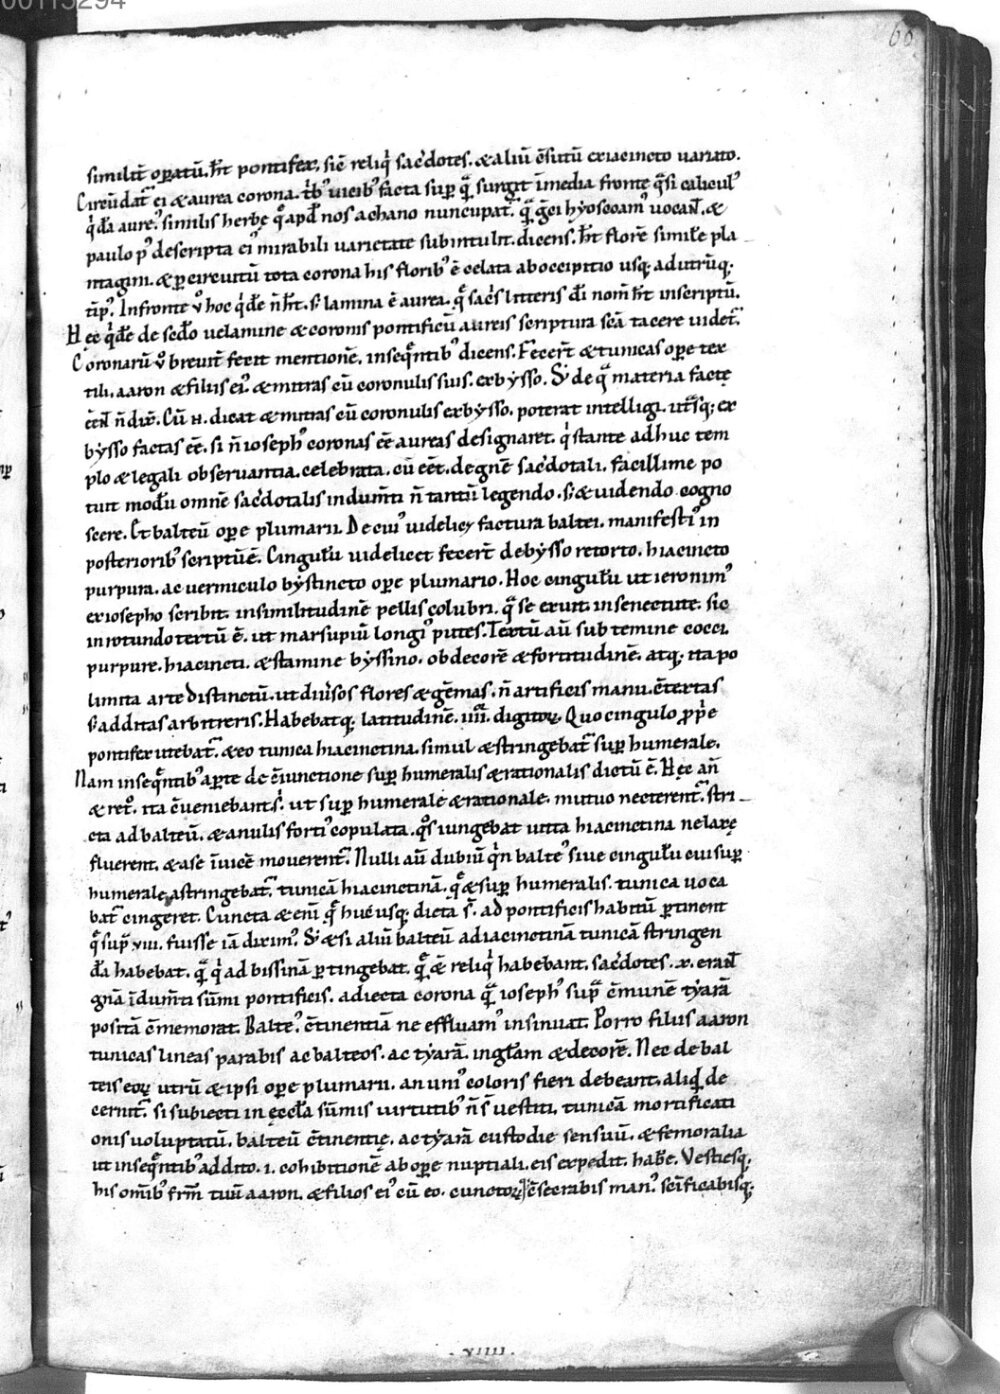 00115294
66
similit̄ opatū. ħt pontifex, sic̄ reliq̇ sac̄dotes. & aliū c̄sutū ex iacincto uariato.
Circūdat̄ ei & aurea corona. t̄b᷒ uicib᷒ facta sup̄ q̄ surgit in media fronte q̄si calicul᷒
q̇dā aure᷒. similis herbę q̄ apd̄ nos achano nuncupat̄. q̄ gr̄ci hyoscoam᷒ uocant. &
paulo p᷒ descripta ei᷒ mirabili uarietate subintulit. dicens. ħt florē similē pla
ntagini. & p circuitū tota corona his florib᷒ ē celata ab occipitio usq; ad utrūq;
tīp᷒. In fronte ů hoc q̇dē n̄ ħt. s; lamina ē aurea. q̄ sac̄s litteris dī nom̄ ħt inscriptū.
Hęc q̇dē de sedo᷒ uelamine & coronis pontificū aureis scriptura scā tacere uidet̄.
Coronarū ů breuit̄ fecit mentionē. in seq̄ntib᷒ dicens. Fecer̄t & tunicas ope tex
tili. aaron & filiis ei᷒. & mitras cū coronulis suis. ex bysso. S; de q̄ materia factę
eēnt n̄ dix̄. Cū n̄. dicat & mitras cū coronulis ex bysso. poterat intelligi. ut̄sq; ex
bysso factas eē. si n̄ ioseph᷒ coronas eē aureas designaret. q̇ stante adhuc tem
plo & legali obseruantia. celebrata. cū eēt. de gn̄e sac̄dotali. facillime po
tuit modū omnē sac̄dotalis indum̄ti n̄ tantū legendo. s; & uidendo cogno
scere. Et balteū ope plumarii. De cui᷒ uidelicet factura baltei. manifesti᷒ in
posteriorib᷒ scriptū ē. Cingulū uidelicet fecer̄t de bysso retorto. hiacincto
purpura. ac uermiculo bystincto ope plumario. Hoc cingulū ut ieronim᷒
ex iosepho scribit. in similitudinē pellis colubri. q̄ se exuit. in senectute. sic
in rotundo textū ē. ut marsupiū longi᷒ putes. Textū aū subtemine cocci.
purpurę. hiacincti. & stamine byssino. ob decorē & fortitudinē. atq; ita po
limita arte distinctū. ut diu̇sos flores & gēmas. n̄ artificis manu. c̄textas
s; additas arbitreris. Habebatq; latitudinē. iiii. digitorꝝ. Quo cingulo p̱p̄e
pontifex utebat̄. & eo tunica hiacinctina. simul & stringebat̄ sup̄ humerale.
Nam in seq̄ntib᷒ apte de c̄iunctione sup̄ humeralis & rationalis dictū ē. Hęc an̄
& ret᷒. ita c̄ueniebant s;. ut sup̄ humerale & rationale. mutuo necterent̄. stri
cta ad balteū. & anulis forti᷒ copulata. q̊s iungebat uitta hiacinctina ne laxę
fluerent. & a se īuicē mouerent̄. Nulli aū dubiū q̇n balte᷒ siue cingulū cui sup̄
humerale astringebat̄. tunicā hiacinctinā. q̄ & sup̄ humeralis. tunica uoca
bat̄ cingeret. Cuncta & enī q̄ huc usq; dicta s̄. ad pontificis habitū ptinent
q̄ sup̄ viii. fuisse iā dixim᷒. S; & si aliū balteū ad iacinctinā tunicā stringen
dā habebat. q̄ q̇ ad bissinā ptingebat. q̄ & reliq̇ habebant. sac̄dotes .x. erant
gn̄a īdum̄ti sūmi pontificis. adiecta corona q̄ ioseph᷒ sup̄ c̄munē tyarā
positā c̄memorat. Balte᷒. c̄tinentiā ne effluam᷒ insinuat. Porro filiis aaron
tunicas lineas parabis ac balteos. ac tyarā. in glam̄ & decorē. Nec de bal
teis eorꝝ utrū & ipsi ope plumarii. an uni᷒ coloris fieri debeant. aliq̇d de
cernit̄. si subiecti in ęccla᷒ sūmis uirtutib᷒ n̄ s̄ uestiti. tunicā mortificati
onis uoluptatū. balteū c̄tinentię. ac tyarā custodię sensuū. & femoralia
ut in seq̄ntib᷒ addito .i. cohibitionē ab ope nuptiali. eis expedit. habē. Vestiesq;
his om̄ib᷒ fr̄m tuū aaron. & filios ei᷒ cū eo. cunctorꝝ c̄secrabis man᷒. sc̄ificabisq;
.viiii.